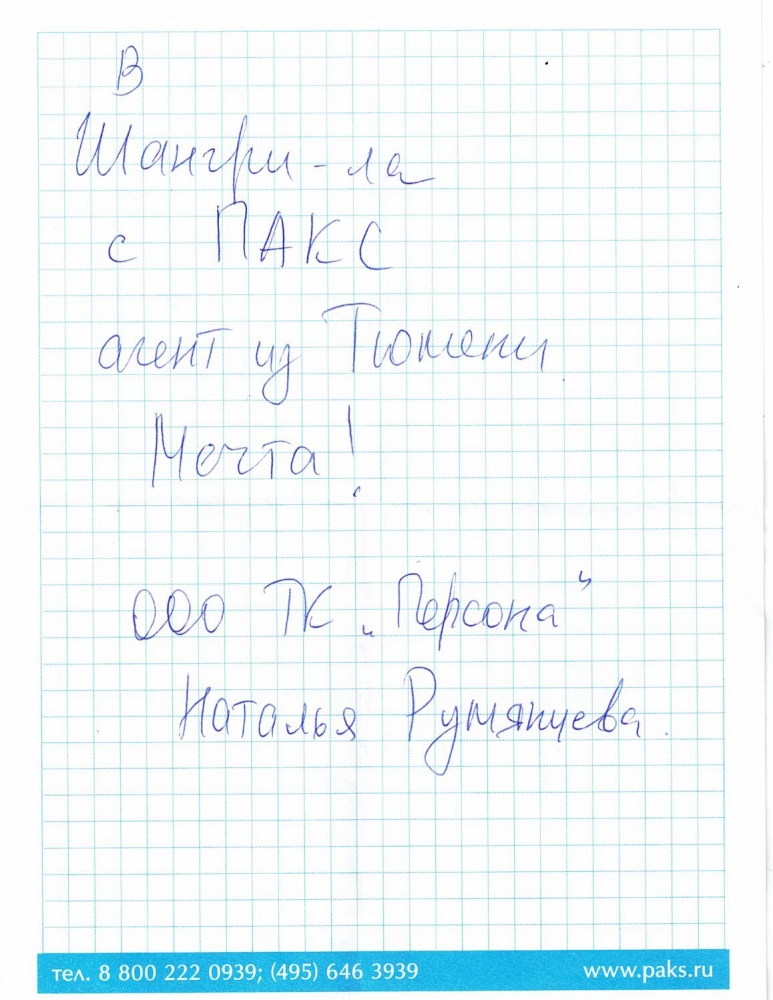 В
Шангри-ла
с ПАКС
агент из Тюмени
Мечта!
ООО ТК „Персона“
Наталья Румянцева.
тел. 8 800 222 0939; (495) 646 3939 www.paks.ru